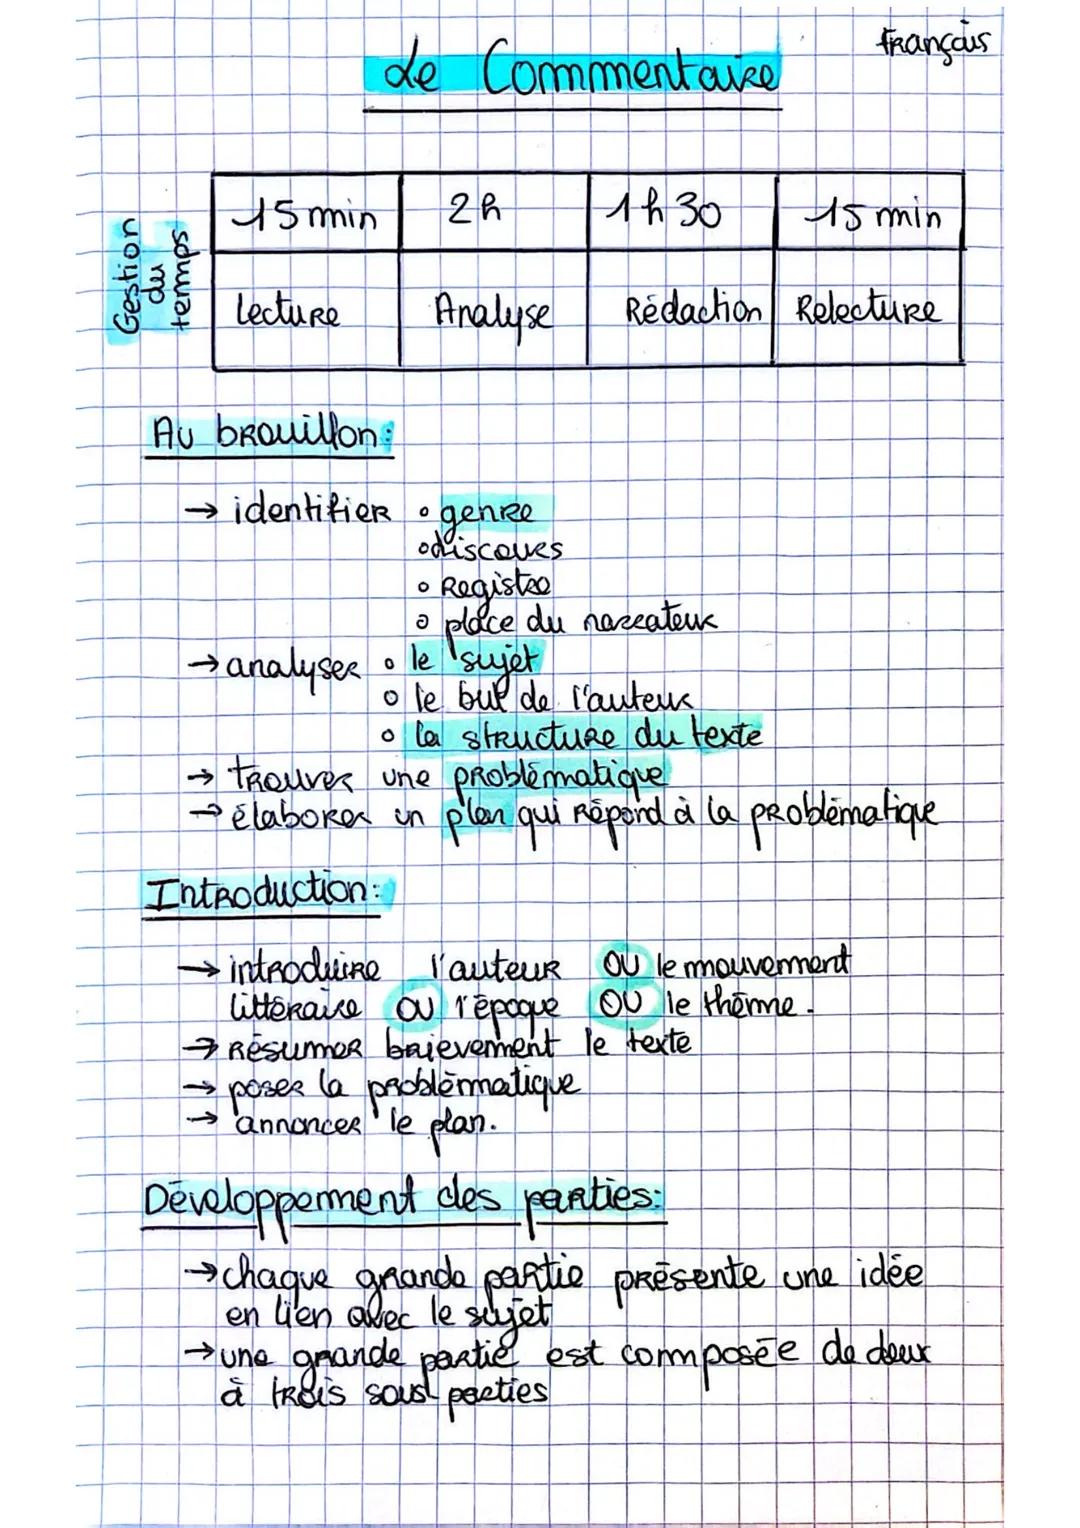 Français
Le Commentaire
Gestion du temps
15 min 2h 1h30 15 min
Lecture Analyse Rédaction Relecture
Au brouillon:
→ identifier • genre
• discours
• Registre
• place du narrateur
→ analyser • le sujet
• le but de l'auteur
• la structure du texte
→ trouver une problématique
→ élaborer un plan qui répond à la problématique
Introduction:
→ introduire l'auteur OU le mouvement
littéraire OU l'époque OU le thème.
→ Résumer brièvement le texte
→ poser la problématique
→ annoncer le plan.
Développement des parties:
→ chaque grande partie présente une idée
en lien avec le sujet
→ une grande partie est composée de deux
à trois sous parties